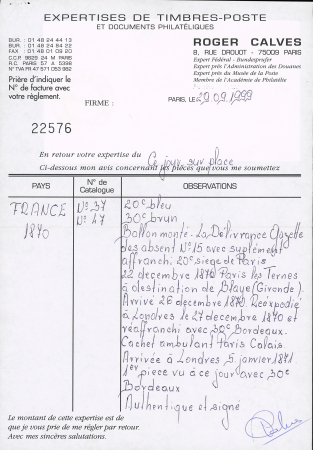 EXPERTISES DE TIMBRES-POSTE
ET DOCUMENTS PHILATÉLIQUES
BUR. : 01 48 24 44 13
BUR. : 01 48 24 64 82
FAX : 01 48 01 09 20
C.C.P. 9628 24 M PARIS
R.C. PARIS 57 A 5398
N° TVA FR 47 571 053 982
Prière d'indiquer le
N° de facture avec
votre règlement.
ROGER CALVES
8, RUE DROUOT - 75009 PARIS
Expert Fédéral - Bundesprüfer
Expert près l'Administration des Douanes
Expert près du Musée de la Poste
Membre de l'Académie de Philatélie
FIRME :
PARIS, LE 29.09.1999
22576
En retour votre expertise du Ce jour sur place
Ci-dessous mon avis concernant les pièces que vous me soumettez
PAYS
N° de Catalogue
OBSERVATIONS
FRANCE N° 37 20c bleu
N° 47 30c brun
1870 Ballon monté. La Délivrance Gazette
des absent N°15 avec suplément
affranchi 20c siège de Paris
22 decembre 1870 Paris les Ternes
à destination de Blaye (Gironde).
Arrivé 26 decembre 1870. Réexpédié
à Londres le 27 decembre 1870 et
réaffranchi avec 30c Bordeaux.
Cachet ambulant Paris Calais
Arrivée à Londres 5 janvier 1871.
1er piece vu à ce jour avec 30c
Bordeaux
Authentique et signé
Le montant de cette expertise est de
que je vous prie de me régler par retour.
Avec mes sincères salutations.